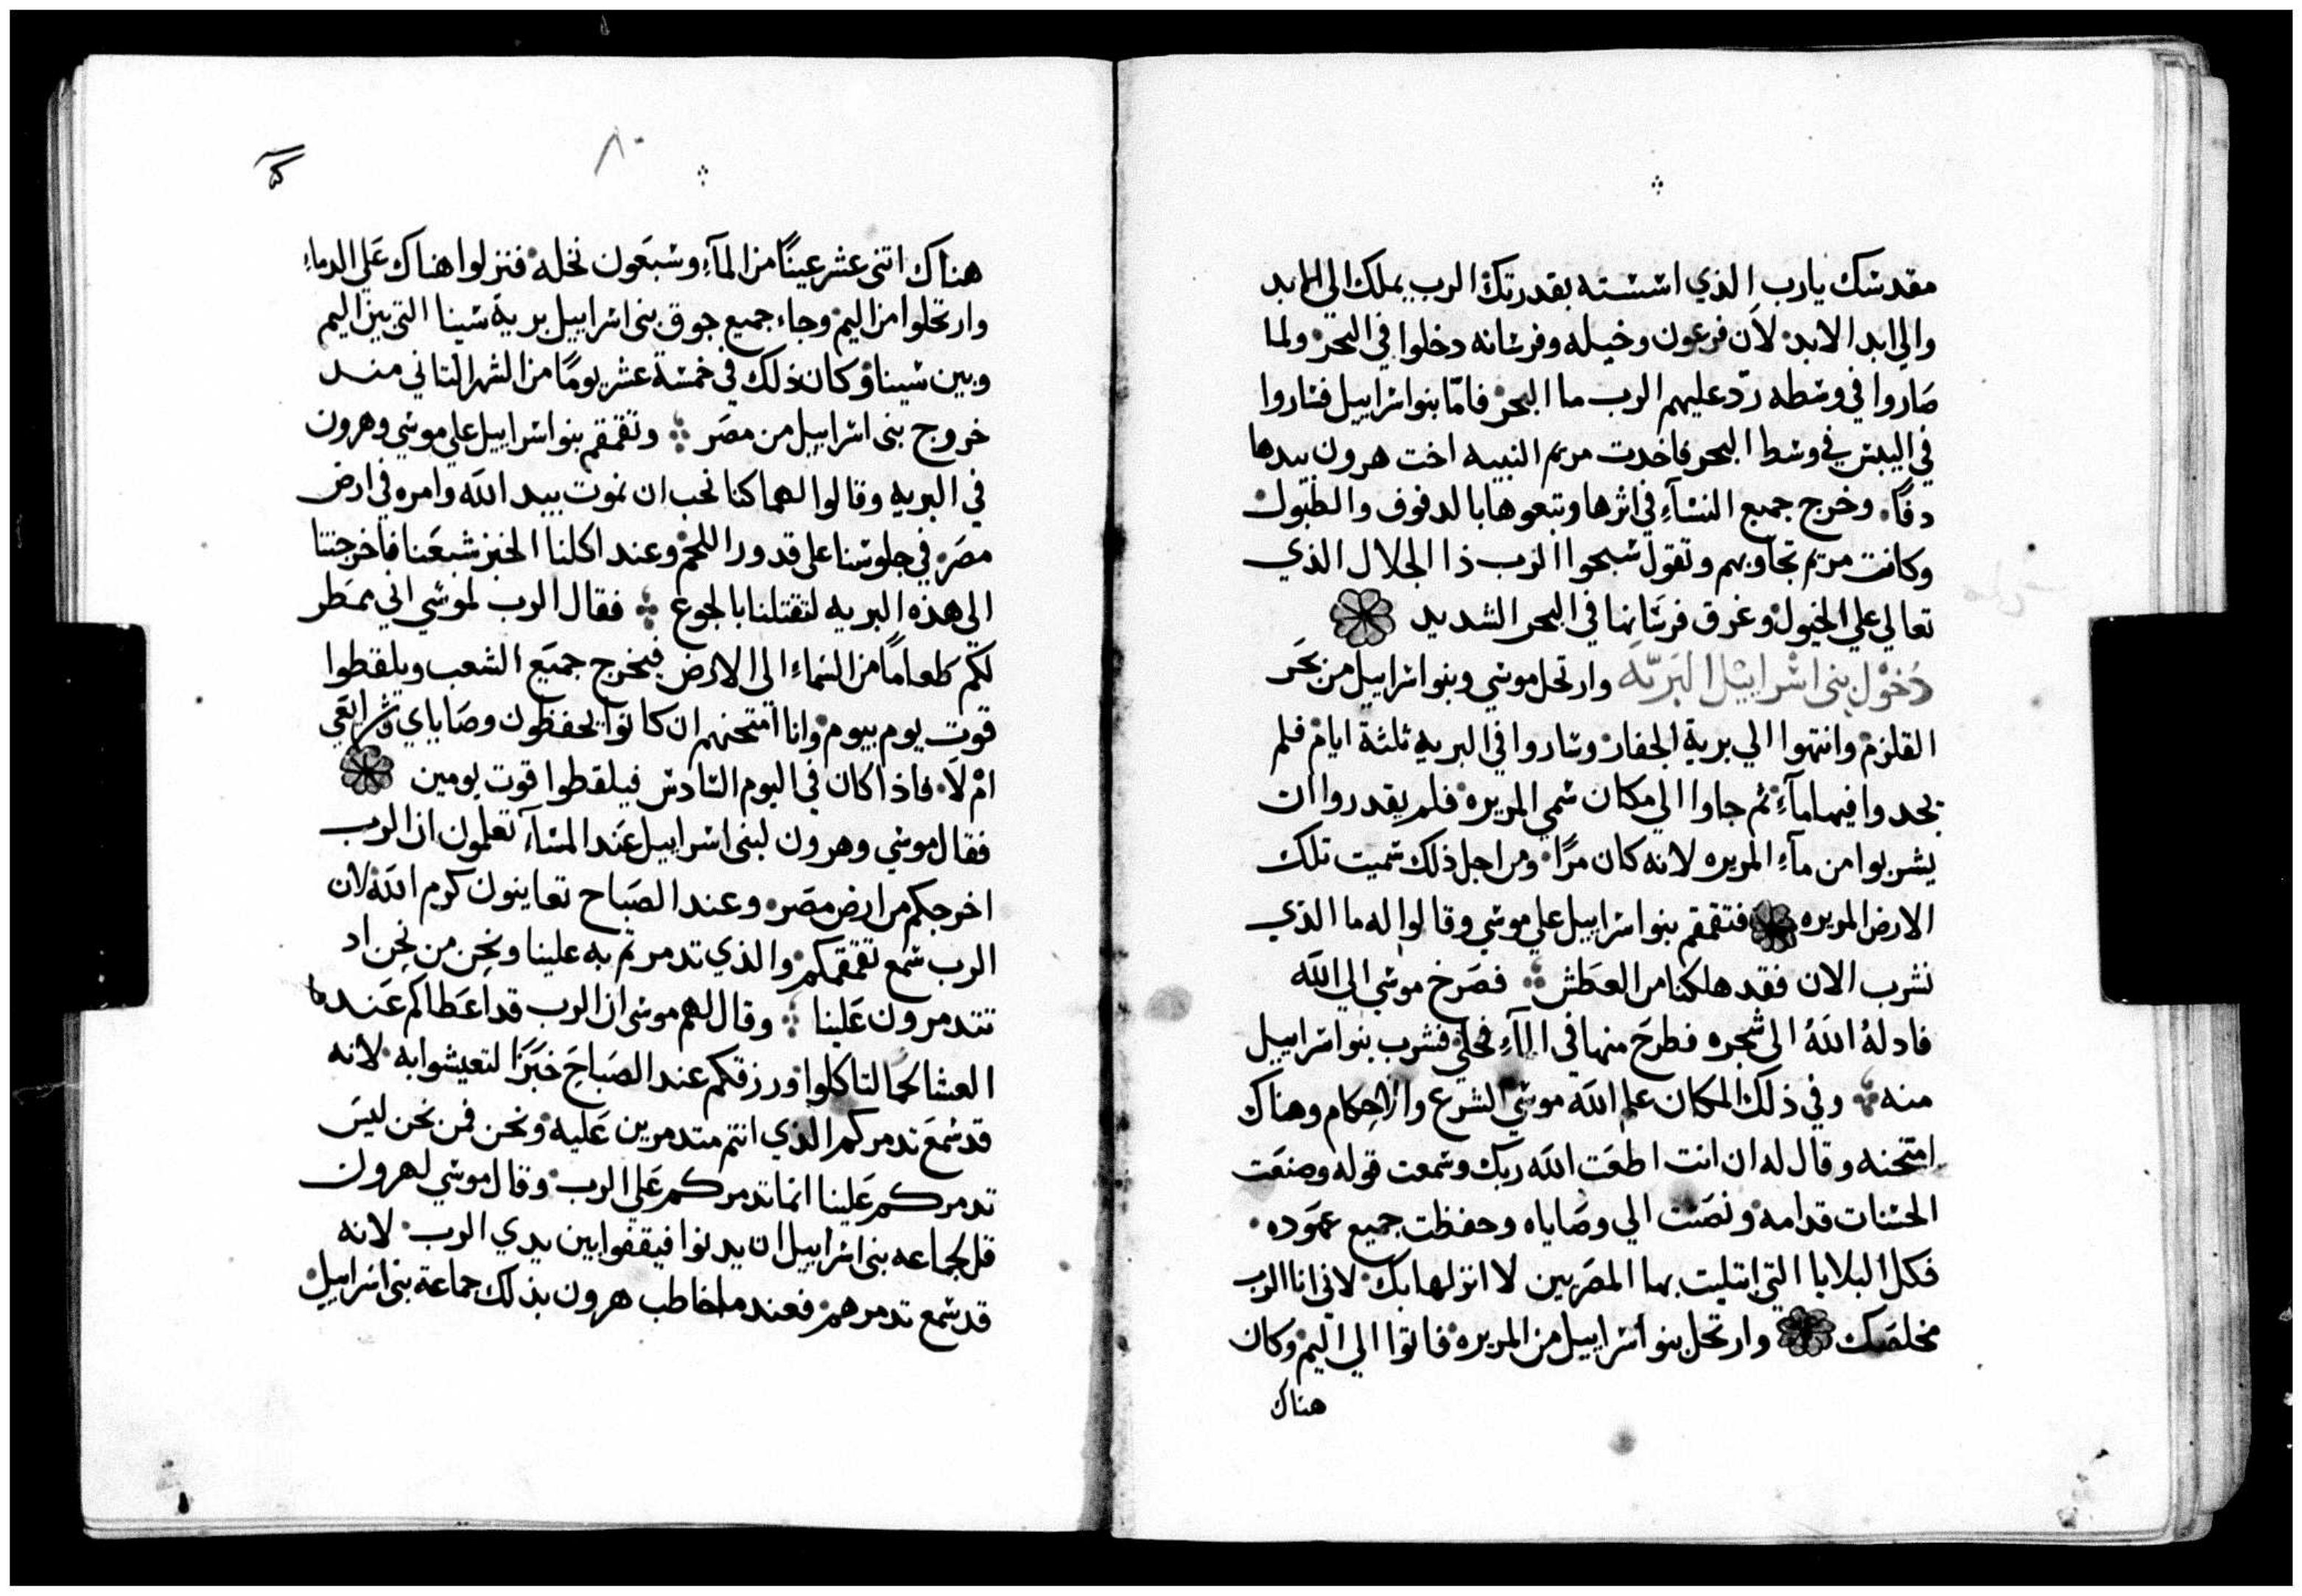 مقدسك يارب الذي اسسته بقدرتك الرب يملك الي الابد
والي ابد الابد لان فرعون وخيله وفرسانه دخلوا في البحر ولما
صاروا في وسطه ردّ عليهم الرب ما البحر فامّا بنو اسراييل فساروا
في اليبس في وسط البحر فاخدت مريم النبيه اخت هرون بيدها
دفًا وخرج جميع النسآءِ في اثرها وتبعوها بالدفوف والطبول
وكانت مريم تجاوبهم وتقول سبحوا الرب ذا الجلال الذي
تعالي علي الخيول وغرق فرسانها في البحر الشديد
دُخوْل بنى اسْراييْل البَريّه وارتحل موسي وبنو اسراييل من بحَر
القلزم وانتهوا الي برية الجفار وساروا في البريه ثلثة ايام فلم
يجدوا فيها مآءِ ثم جاوا الي مكان سمي المريره فلم يقدروا ان
يشربوا من مآءِ المريره لانه كان مرًا ومن اجل ذلك سميت تلك
الارض المريره فتقمقم بنو اسراييل علي موسي وقالوا له ما الذي
نشرب الان فقد هلكنا من العطش فصَرخ موسي الي الله
فادلهُ اللهُ الى شجره فطرحَ منها في المآءِ فحلي فشرب بنو اسراييل
منه وفي ذلك المكان علم الله موسي الشرع والاحكام وهناك
امتحنه وقال له ان انت اطعَت الله ربك وسمعت قوله وصنعَت
الحسنات قدامه ونصَتت الي وصَاياه وحفظت جميع عهوده
فكل البلايا التي ابتليت بها المصَريين لا انزلها بك لاني انا الرب
مخلصَك وارتحل بنو اسراييل من المريره فاتوا الي اليم وكان
هناك
٨٠
هناك اتنى عشر عينًا من المآءِ وسبعَون نخله فنزلوا هناك عَلي الماءِ
وارتحلوا من اليم وجاء جميع جوق بنى اسراييل برية سينا التي بين اليم
وبين سينا وكان ذلك في خمسة عشر يومًا من الشهر التاني مند
خروج بنى اسراييل من مصَر وتقمقم بنو اسراييل علي موسي وهرون
في البريه وقالوا لهما كنا نحب ان نموت بيد الله وامره في ارض
مصَر في جلوسنا على قدور اللحم وعند اكلنا الخبز شبعَنا فاخرجتنا
الى هذه البريه لتقتلنا بالجوع فقال الرب لموسي اني ممَطر
لكم طعامًا من السَماءِ الى الارض فيخرج جميَع الشعب ويلقطوا
قوت يوم بيوم وانا امتحنهم ان كانوا يحفظون وصَاياي وشرايعَي
امْ لَا فاذا كان في اليوم السَادس فيلقطوا قوت يومين
فقال موسي وهرون لبنى اسراييل عَند المسَآءِ تعلمون ان الرب
اخرجكم من ارض مصَر وعند الصَباح تعاينون كرم الله لان
الرب سمع تقمقمكم والذي تدمرتم به علينا ونحِن من نحِن اد
تتدمرون عَلينا وقال لهم موسى ان الرب قد اعَطاكم عَندما
العشا لحمًا لتاكلوا ورزقكم عند الصَباحَ خبَزًا لتعيشوا به لانه
قد سَمعَ تدمركم الذي انتم متدمرين عَليه ونحن فمن نحن ليسَ
تدمركم عَلينا انما تدمركم عَلي الرب وقال موسي لهرون
قل لجماعه بنى اسراييل ان يدنوا فيقفوا بين يدي الرب لانه
قد سَمع تدمرهم فعندما خاطب هرون بذلك جماعة بنى اسراييل